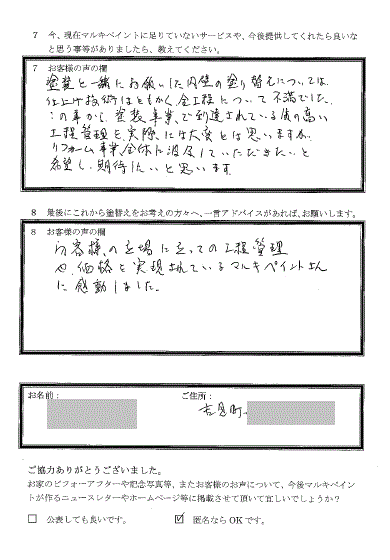 7 今、現在マルキペイントに足りていないサービスや、今後提供してくれたら良いな
と思う事等がありましたら、教えてください。
7 お客様の声の欄
塗装と一緒にお願いした内壁の塗り替えについては
仕上げ技術はともかく全工程について不満でした。
この事から、塗装事業で到達されている質の高い
工程管理を、実際には大変とは思いますが、
リフォーム事業全体に波及していただきたいと
希望し、期待したいと思います
8 最後にこれから塗替えをお考えの方々へ、一言アドバイスがあれば、お願いします。
8 お客様の声の欄
お客様の立場に立っての工程管理
や、価格を実現されているマルキペイントさん
に感動しました。
お名前:
ご住所:
吉見町
ご協力ありがとうございました。
お家のビフォーアフターや記念写真等、またお客様のお声について、今後マルキペイン
トが作るニュースレターやホームページ等に掲載させて頂いて宜しいでしょうか?
□ 公表しても良いです。 ☑ 匿名なら OK です。